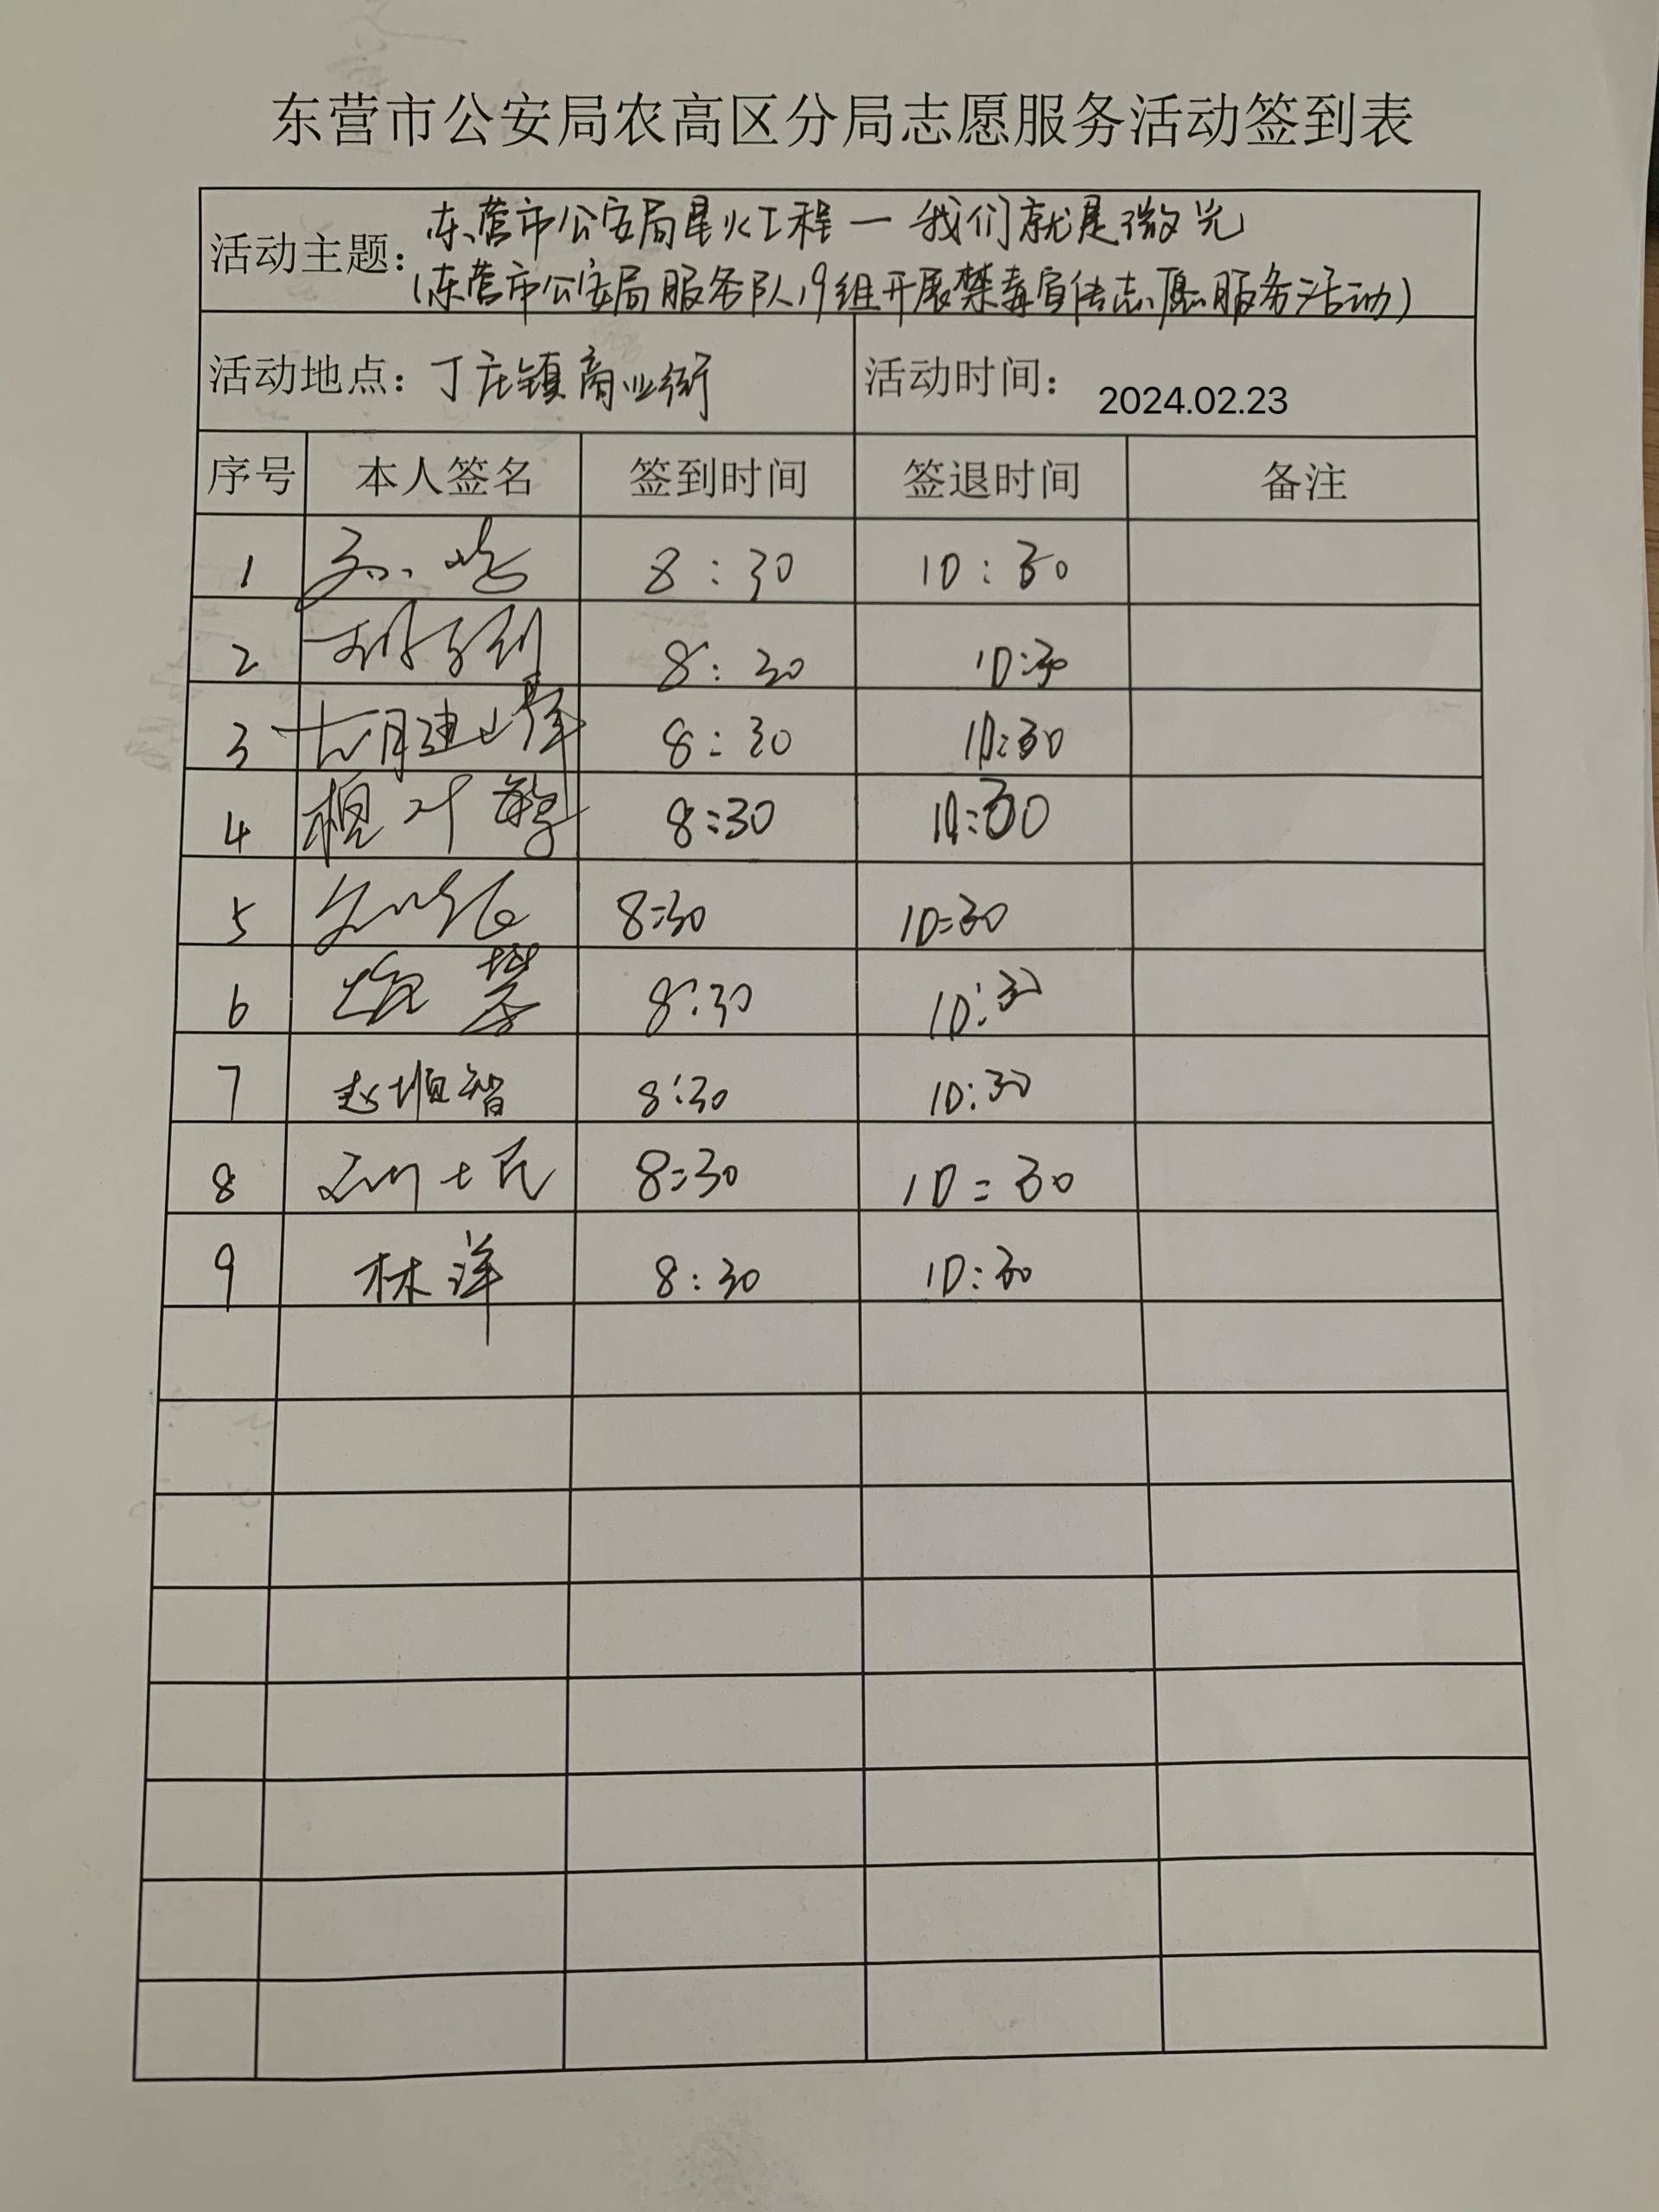 东营市公安局农高区分局志愿服务活动签到表
活动主题：
东营市公安局星火工程一我们就是微光
（东营市公安局服务队19组开展禁毒宣传志愿服务活动）
活动地点：丁庄镇商业街 活动时间：2024.02.23
序号 本人签名 签到时间 签退时间 备注
1 8:30 10:30
2 8:30 10:30
3 胡建峰 8:30 10:30
4 8:30 10:30
5 8:30 10:30
6 8:30 10:30
7 赵顺智 8:30 10:30
8 8:30 10:30
9 林洋 8:30 10:30